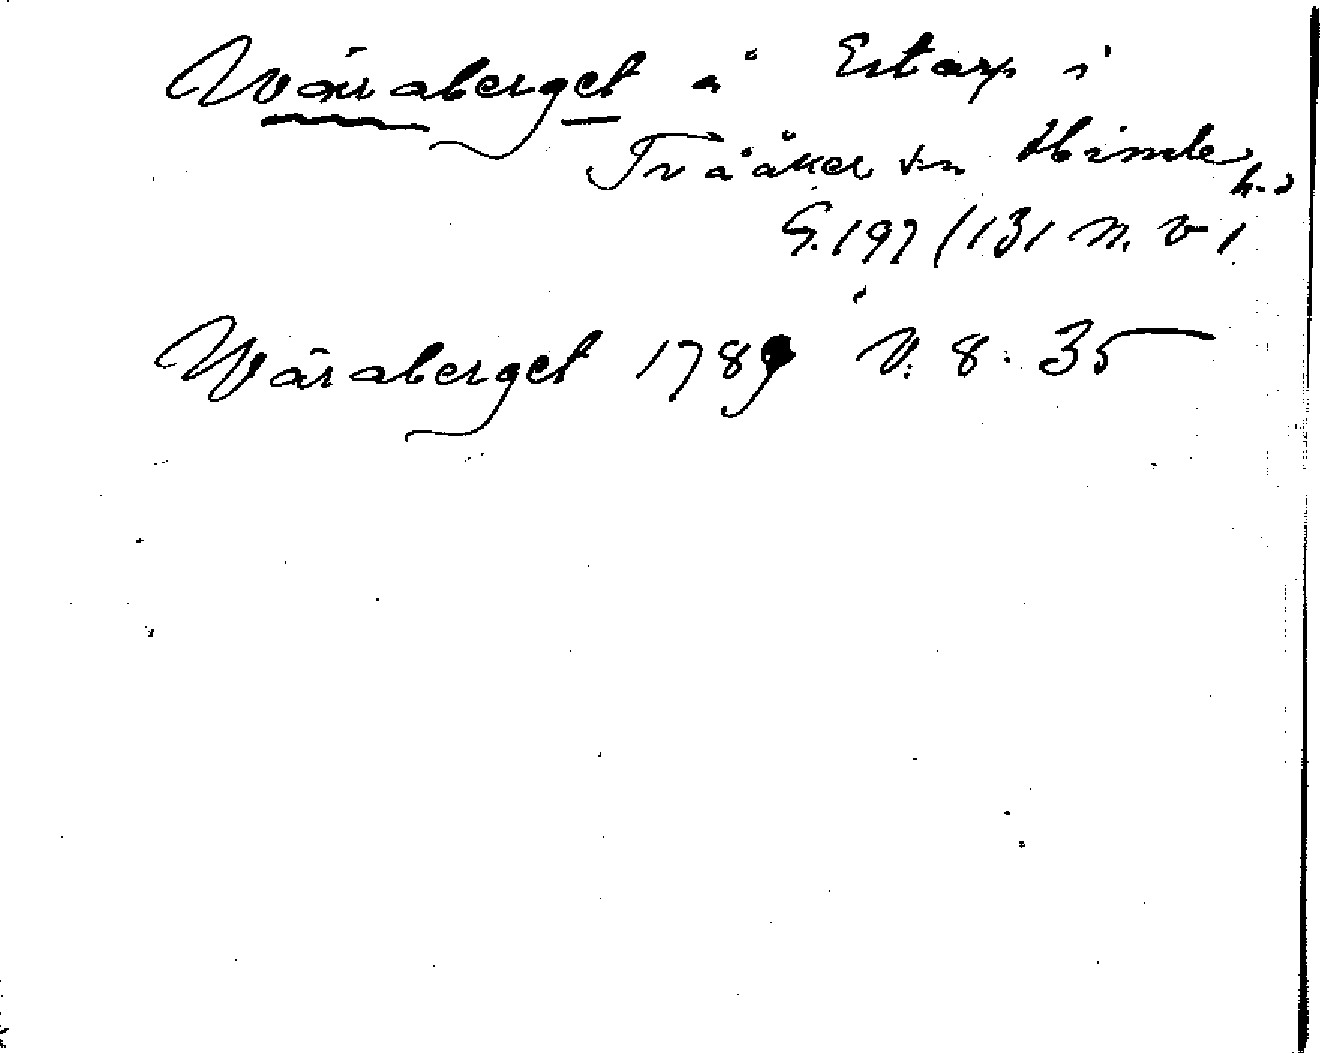 Wäraberget å Estarp i
Tvååker sn Himle h.
G.197/131 N. V 1
Wäraberget 1789 V. 8. 35